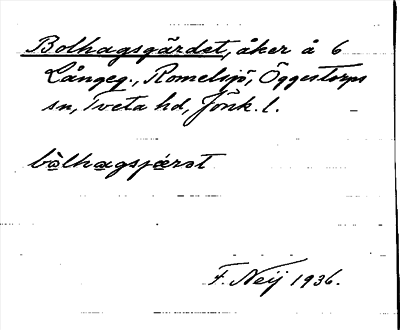 Bolhagsgärdet, åker å 6
Långeg., Romelsjö, Öggestorps
sn, Tveta hd, Jönk. l.
bòlhagsjæ̀rət
F. Neij 1936.